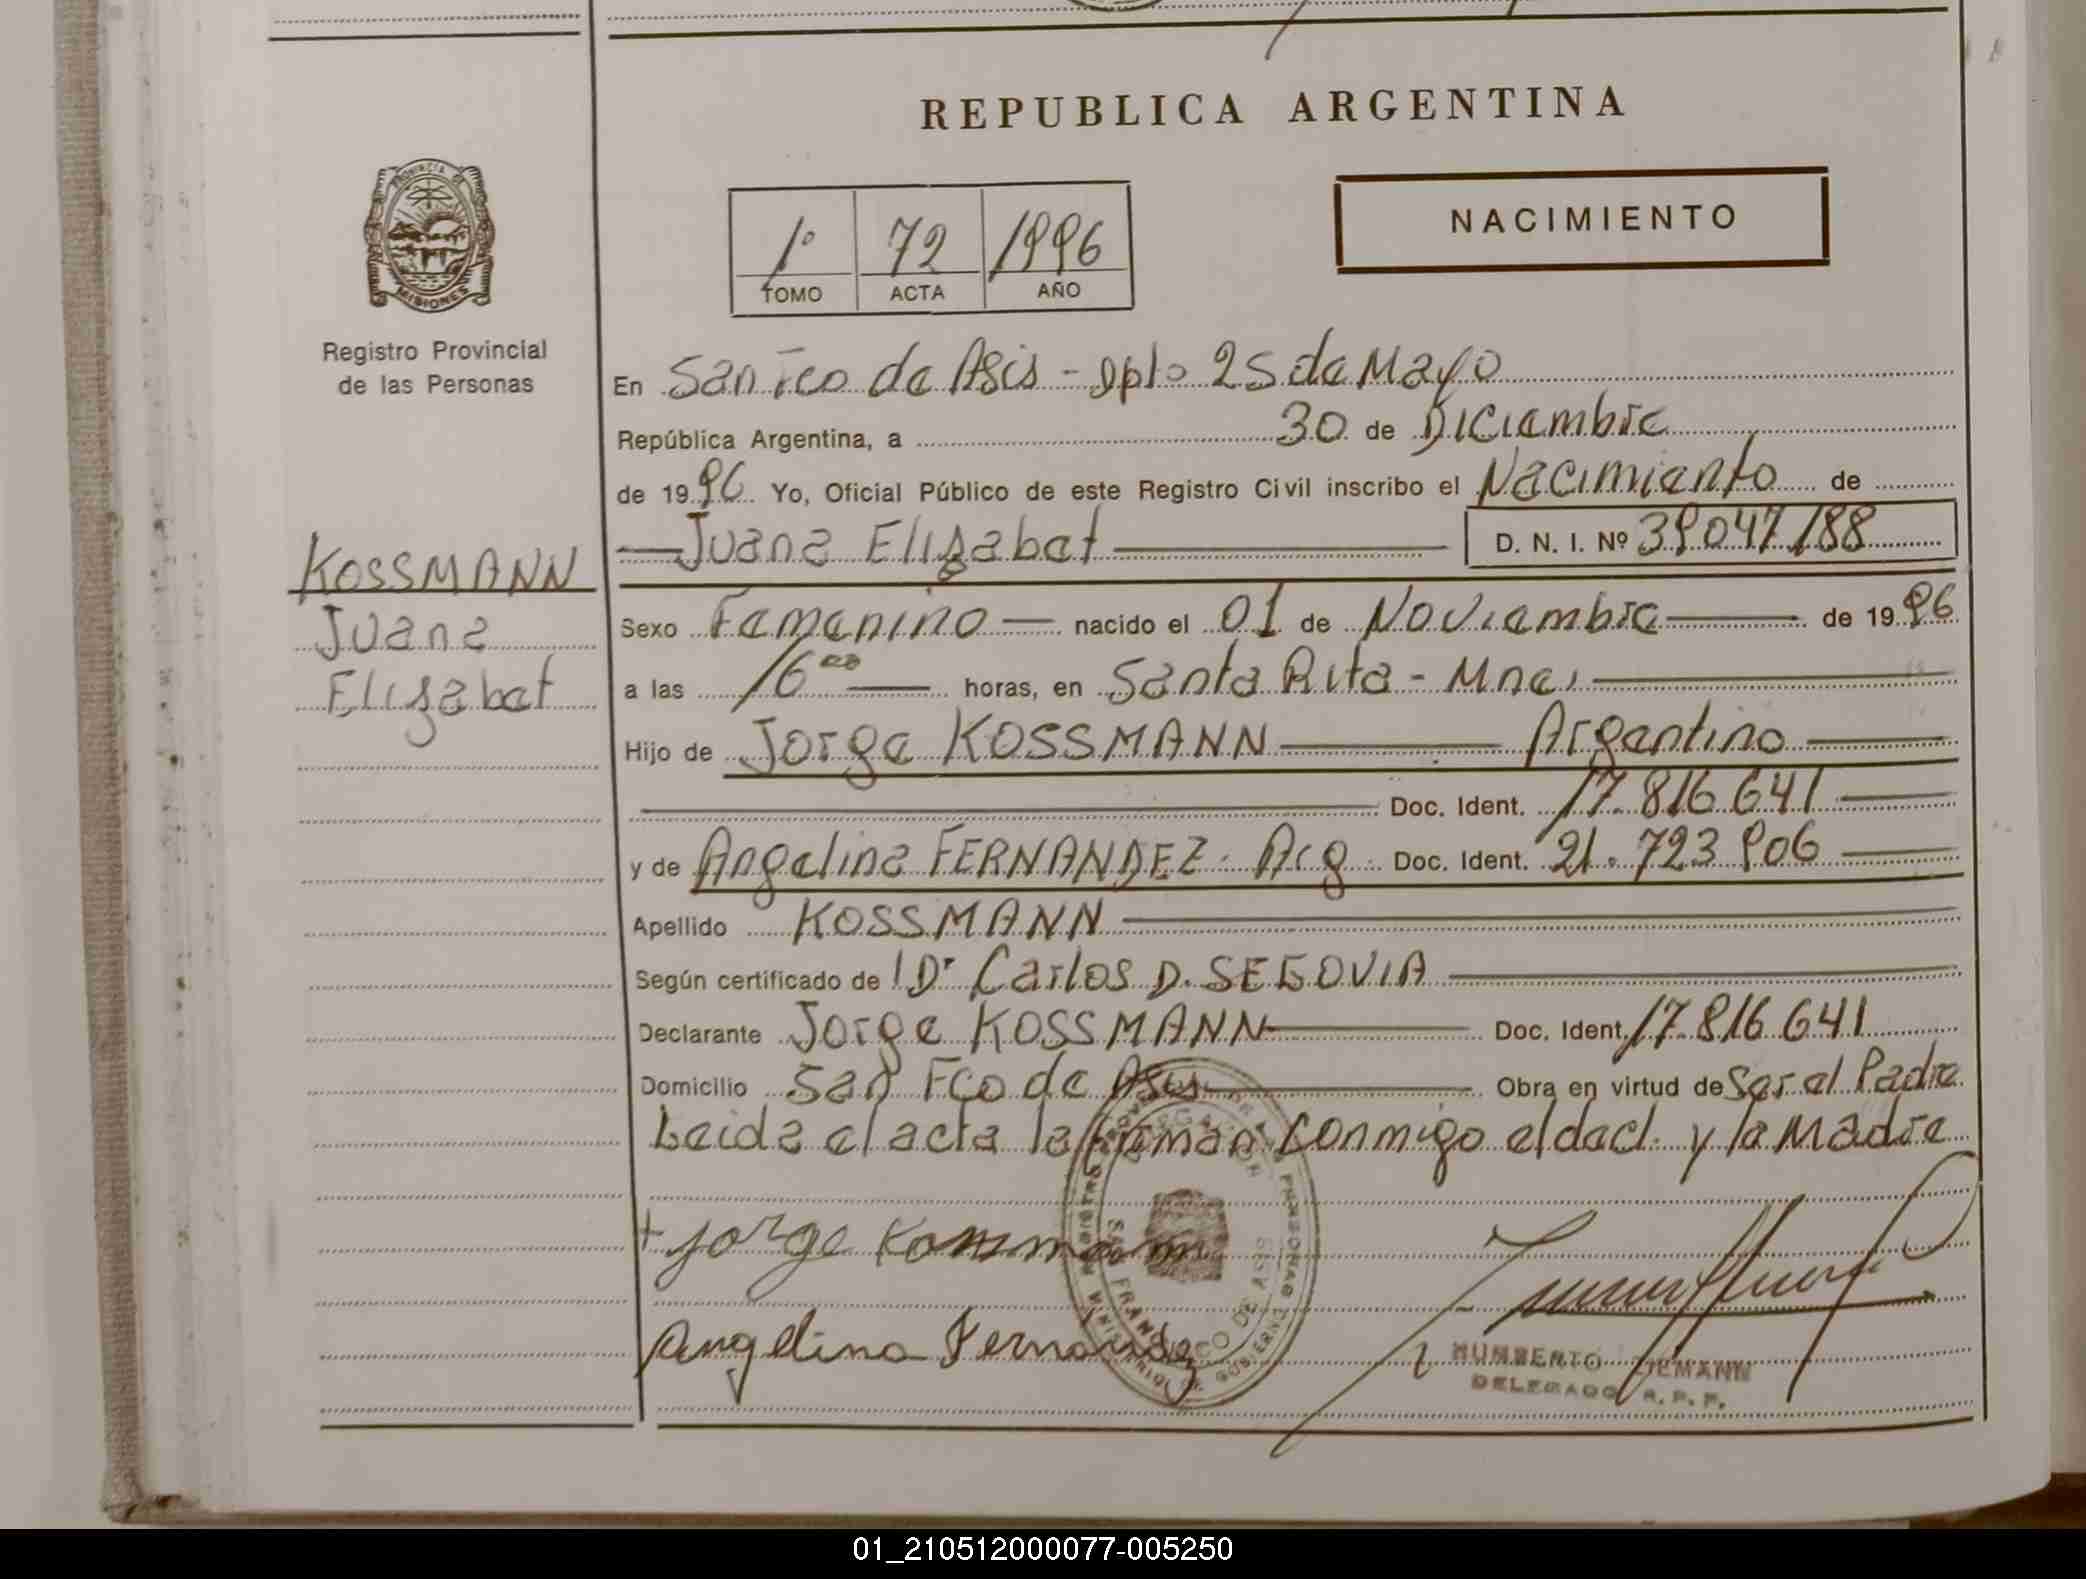 REPUBLICA ARGENTINA
PROVINCIA DE
MISIONES
Registro Provincial
de las Personas
1º 72 1996
TOMO ACTA AÑO
NACIMIENTO
En San Fco de Asis - Dpto 25 de Mayo
República Argentina, a 30 de Diciembre
de 1996 Yo, Oficial Público de este Registro Civil inscribo el Nacimiento de
Juana Elizabet D. N. I. Nº 39047188
KOSSMANN
Juana
Elizabet
Sexo Femenino nacido el 01 de Noviembre de 1996
a las 16 00 horas, en Santa Rita - Mnes
Hijo de Jorge KOSSMANN Argentino
Doc. Ident. 17.816 641
y de Angelina FERNANDEZ. Arg. Doc. Ident. 21.723 906
Apellido KOSSMANN
Según certificado de Dr Carlos D. SEGOVIA
Declarante Jorge KOSSMANN Doc. Ident. 17.816 641
Domicilio San Fco de Asis Obra en virtud de Ser el Padre
Leida el acta la firman conmigo el decl. y la Madre
Jorge Kossmann
Angelina Fernandez
HUMBERTO
DELEGADO R. P. P.
SAN FRANCISCO DE ASIS
01_210512000077-005250